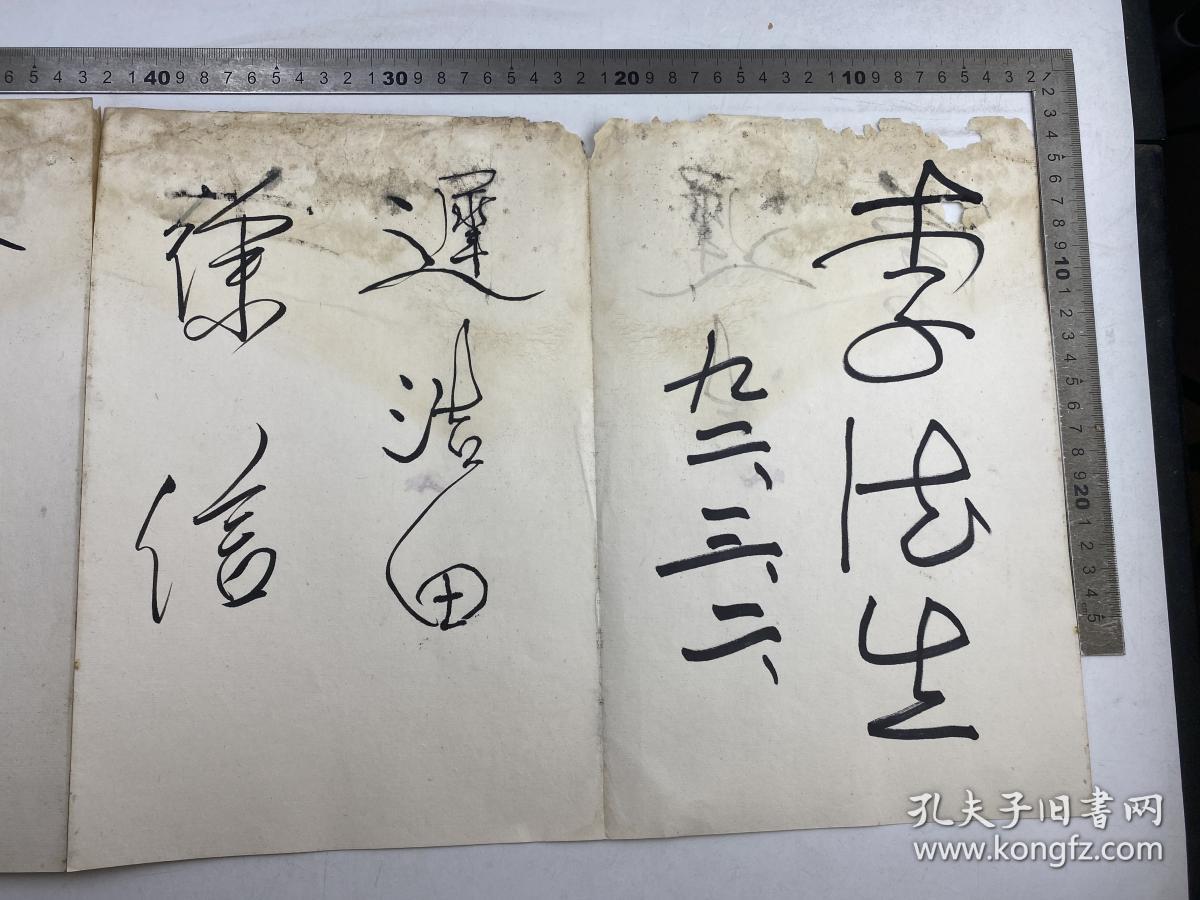 李德生
九二、三、二、
遲浩田
徐信
6 5 4 3 2 1 40 9 8 7 6 5 4 3 2 1 30 9 8 7 6 5 4 3 2 1 20 9 8 7 6 5 4 3 2 1 10 9 8 7 6 5 4 3 2 1
2 3 4 5 6 7 8 9 10 1 2 3 4 5 6 7 8 9 20 1 2 3 4 5
孔夫子旧书网
www.kongfz.com